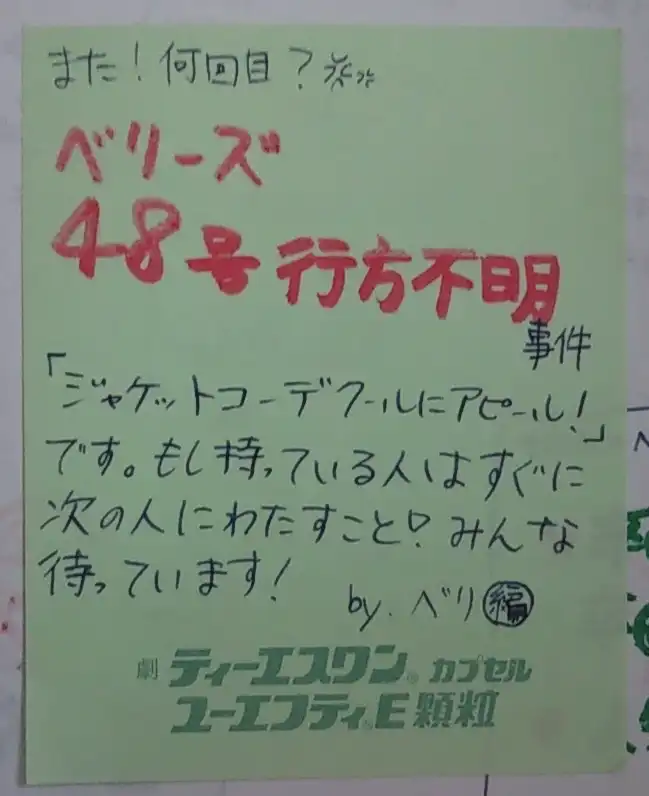 また!何回目?
ベリーズ
48号行方不明
事件
「ジャケットコーデクールにアピール!」
です。もし持っている人はすぐに
次の人にわたすこと!みんな
待っています!
by.ベリ編
劇ティーエスワン®カプセル
ユーエフティ®E顆粒